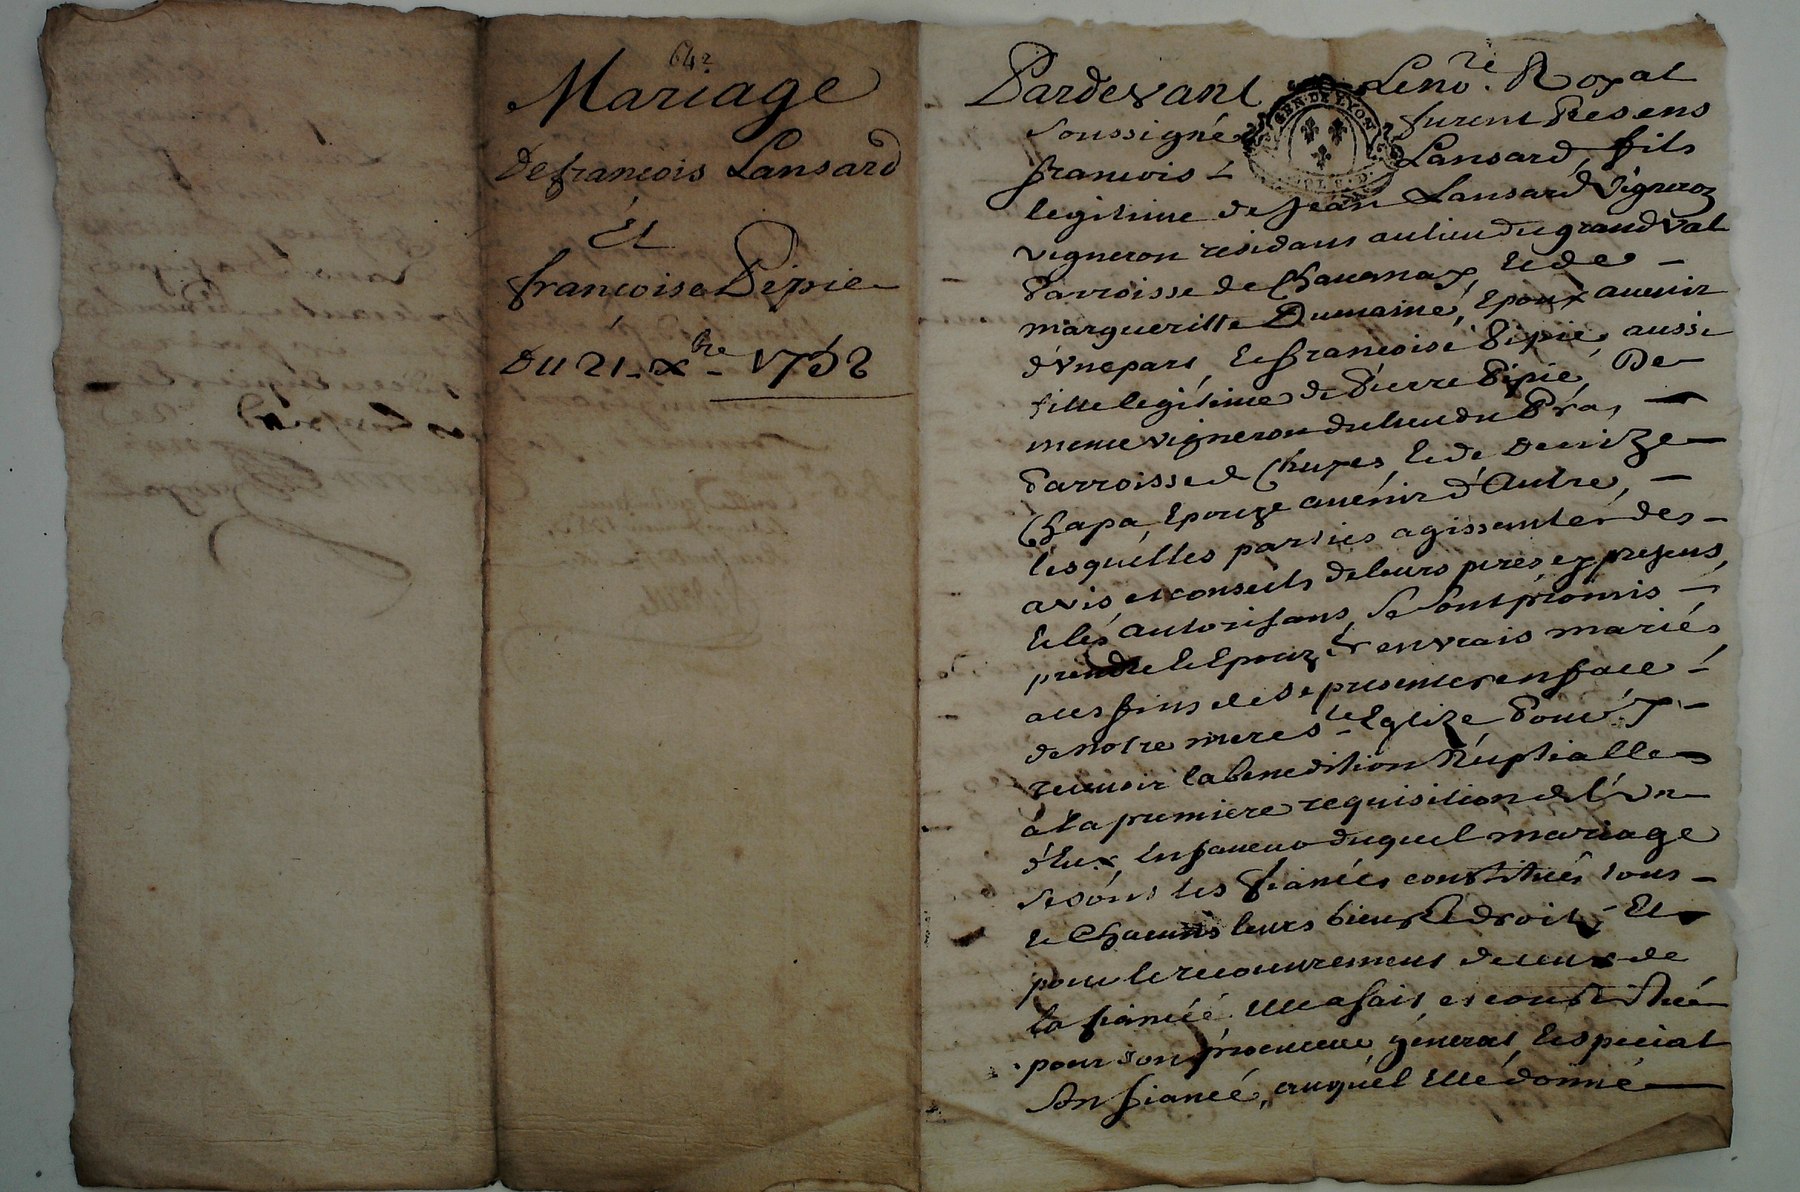 642
Mariage
De françois Lansard
Et
françoise Pipie
Du 21 xbre 1752
Pardevant Le no.re Royal
soussigné furent Presens
françois Lansard, fils
legitime de Jean Lansard Vigneron
vigneron residans au lieu du grand val
Parroisse de Chavanay, Et de
margueritte Dumaine, Epoux avenir
d'Une part, Et françoise Pipie, aussi
fille legitime de Pierre Pipie, De
meme vigneron du lieu du Pra,
Parroisse de Chuyes, Et de Denize
Chapa, Epouze avenir d'Autre,
lesquelles parties agissantes des
avis et conseils de leurs peres, cy presens,
Et les autorisans, se sont promis
prendre Et Epouzer en vrais mariés,
a ces fins de se presenter en face
de notre mere Ste Eglize Pour y
recevoir la benedition Nuptialle
à la premiere requisition de l'Un
d'Eux, En faveur duquel mariage
se sont les fiancés constitués tous
Et Chacuns leurs biens Et droits, Et
pour le recouvrement de ceux de
la fiancée Elle a fait et constitué
pour son procureur géneral Et special
son fiancé, auquel Elle donne
GEN. DE LYON